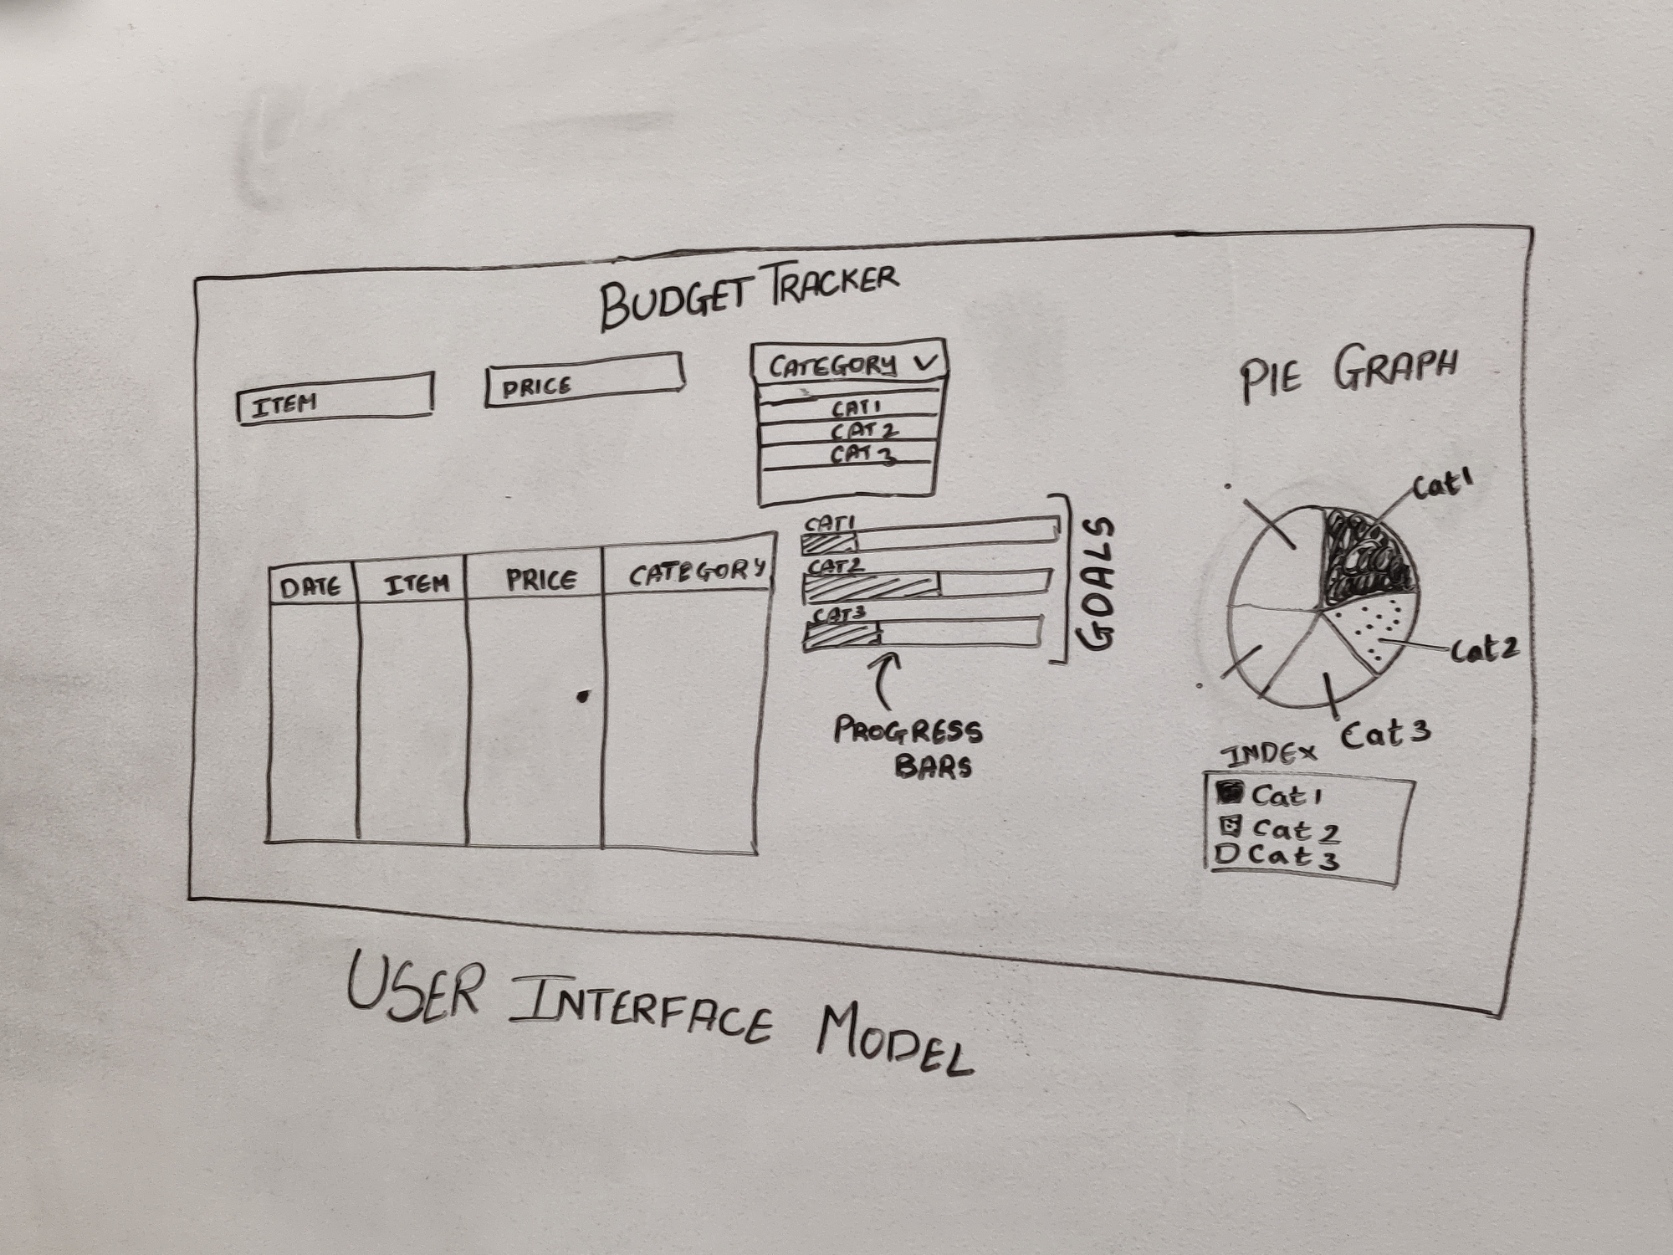 BUDGET TRACKER
ITEM
PRICE
CATEGORY
CAT1
CAT2
CAT3
DATE ITEM PRICE CATEGORY
CAT1
CAT2
CAT3
GOALS
PROGRESS
BARS
PIE GRAPH
Cat1
Cat2
Cat3
INDEX
Cat1
Cat2
Cat3
USER INTERFACE MODEL